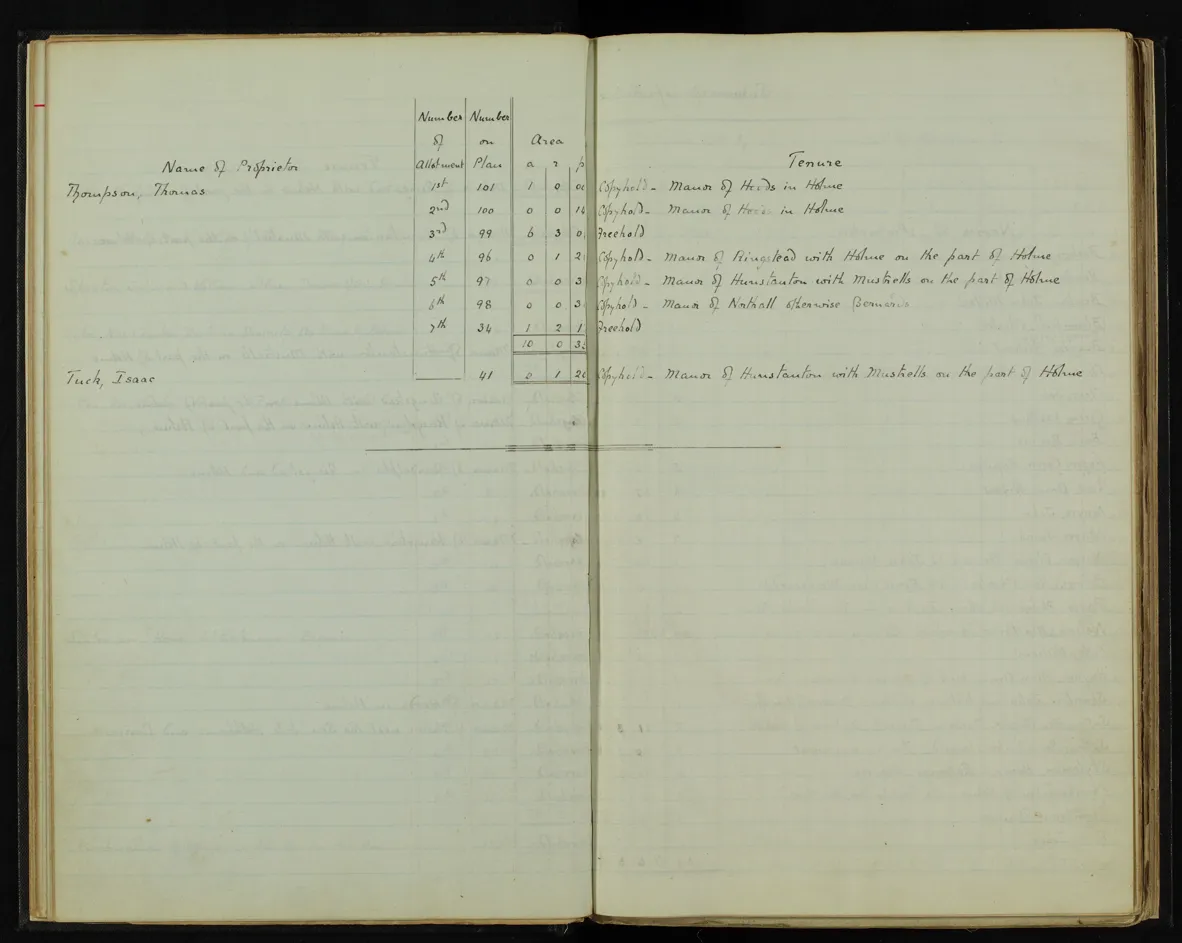 Number Number
of on Area
Name of Proprietor Allotment Plan a r p Tenure
Thompson, Thomas 1st 101 1 0 Copyhold - Manor of Holme in Holme
2nd 100 0 0 14 Copyhold - Manor of in Holme
3rd 99 6 3 Freehold
4th 96 0 1 Copyhold - Manor of Ringstead with Holme on the part of Holme
5th 97 0 0 Copyhold - Manor of Hunstanton with Mustrells on the part of Holme
6th 98 0 0 Copyhold - Manor of Northall otherwise Bernards
7th 34 1 2 Freehold
10 0
Tuck, Isaac 41 0 1 Copyhold - Manor of Hunstanton with Mustrells on the part of Holme